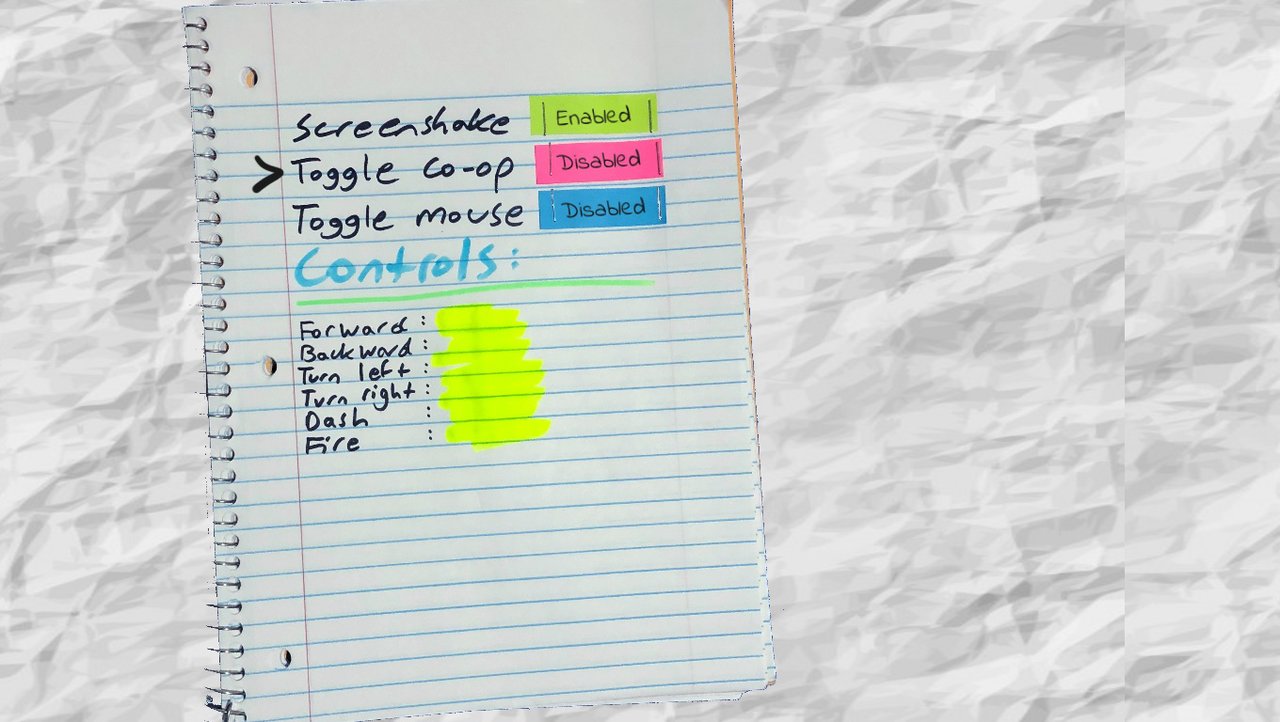 Screenshake | Enabled |
> Toggle co-op | Disabled |
Toggle mouse | Disabled |
Controls:
Forward :
Backward :
Turn left :
Turn right :
Dash :
Fire :